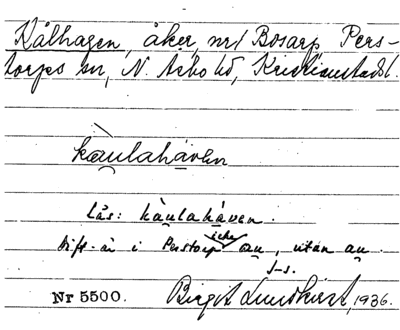 Kålhagen, åker, nr 1 Bosarp, Pers-
torps sn, N. Åsbo hd, Kristianstads l.
kaulahàven
Läs: kàulahàven.
Dift. är i Perstorp icke au, utan au.
J-s.
Nr 5500. Birgit Lundkvist, 1936.